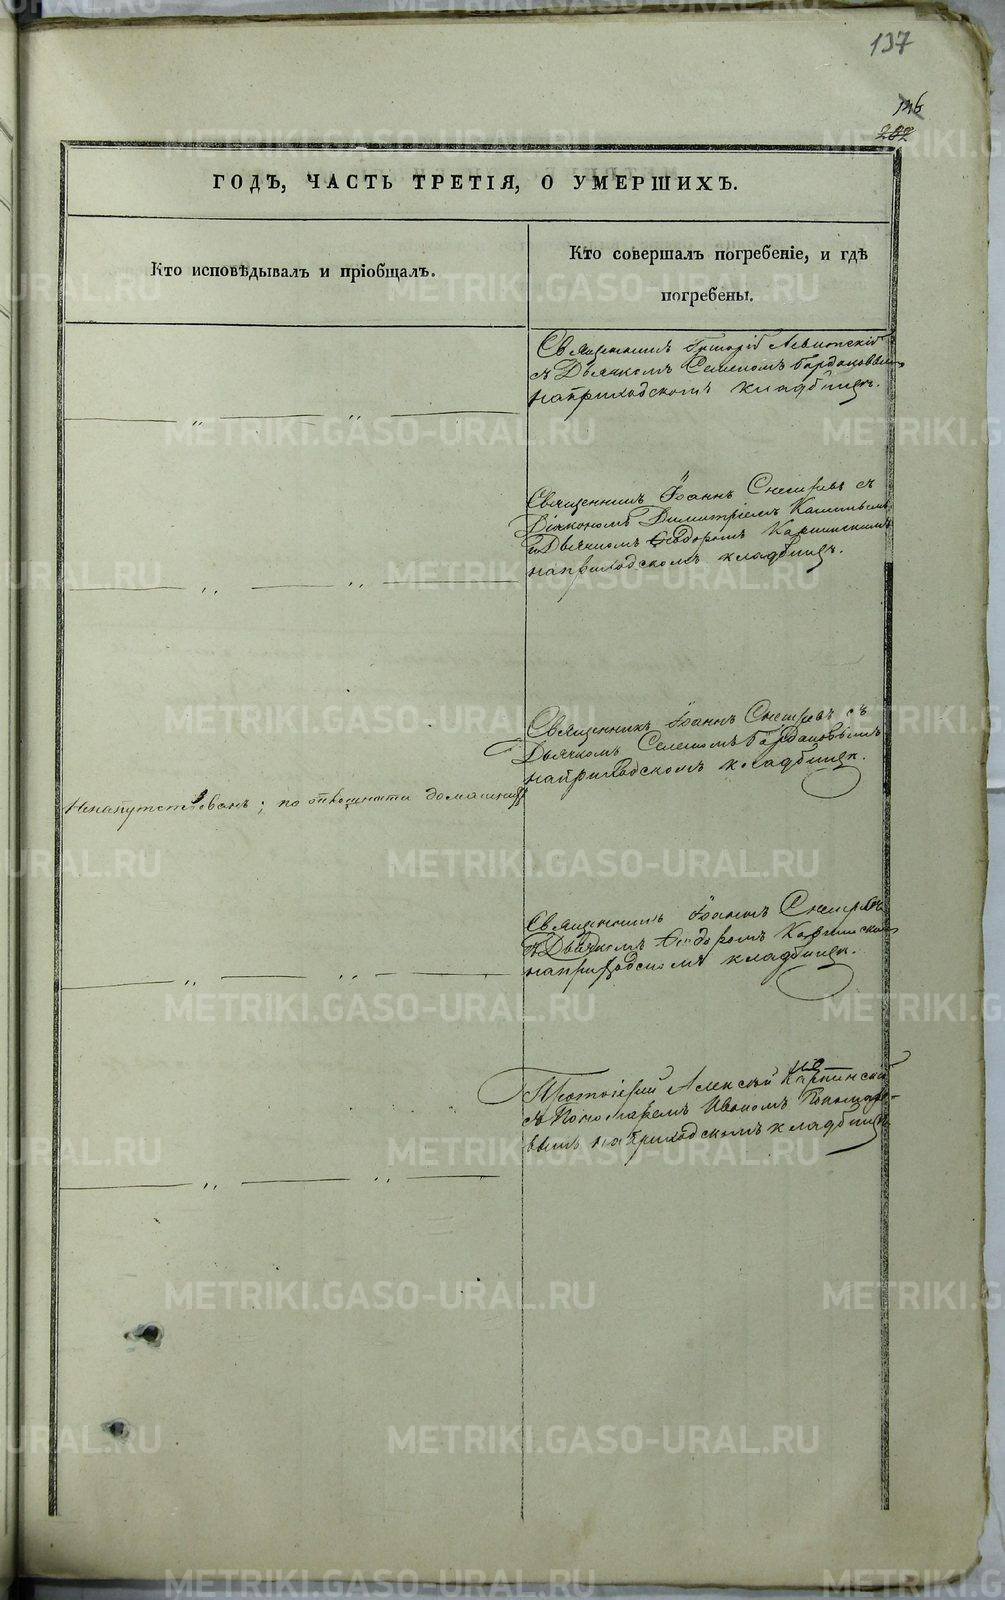 137
126
202
ГОДЪ, ЧАСТЬ ТРЕТІЯ, О УМЕРШИХЪ.
Кто исповѣдывалъ и пріобщалъ.
Кто совершалъ погребеніе, и гдѣ
погребены.
Священникъ Григорій
съ Дьячкомъ Семеномъ
на приходскомъ кладбищѣ.
Священникъ Іоаннъ Снегиревъ съ
Діакономъ Димитріемъ
и Дьячкомъ Ѳеодоромъ Карпинскимъ
на приходскомъ кладбищѣ.
Священникъ Іоаннъ Снегиревъ съ
Дьячкомъ Семеномъ
на приходскомъ кладбищѣ.
Ненапутствованъ; по домашнихъ
Священникъ Іоаннъ Снегиревъ
съ Дьячкомъ Ѳеодоромъ Карпинскимъ
на приходскомъ кладбищѣ.
Протоіерей Алексѣй Карпинскій
съ Пономаремъ Иваномъ Пономаре-
вымъ на приходскомъ кладбищѣ
METRIKI.GASO-URAL.RU